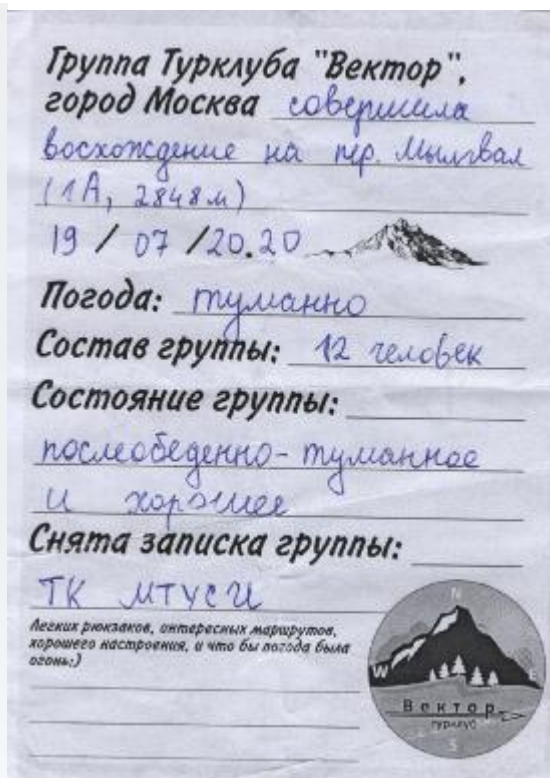 Группа Турклуба "Вектор",
город Москва совершила
восхождение на пер. Мылгвал
(1А, 2848 м)
19 / 07 / 20.20
Погода: туманно
Состав группы: 12 человек
Состояние группы:
послеобеденно-туманное
и хорошее
Снята записка группы:
ТК МТУСИ
Легких рюкзаков, интересных маршрутов,
хорошего настроения, и что бы погода была
огонь:)
N
W E
Вектор
турклуб
S